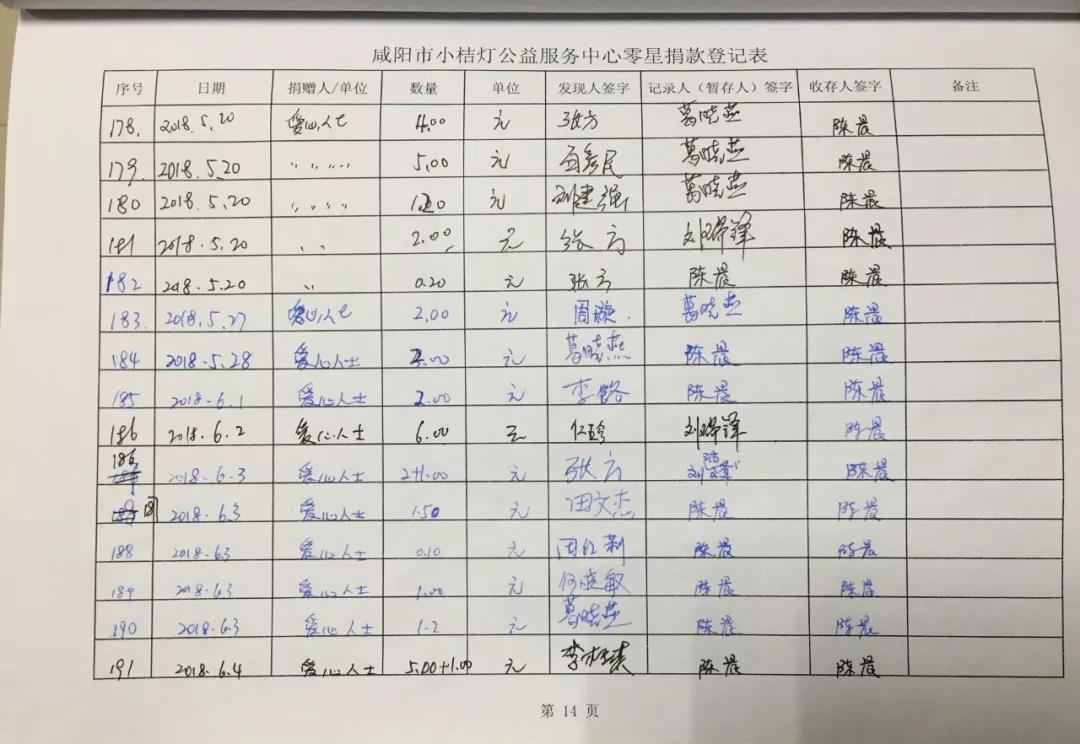 咸阳市小桔灯公益服务中心零星捐款登记表
序号 日期 捐赠人/单位 数量 单位 发现人签字 记录人（暂存人）签字 收存人签字 备注
178. 2018.5.20 爱心人士 4.00 元 张方 葛晓燕 陈晨
179. 2018.5.20 〃 〃 〃 〃 5.00 元 葛晓燕 陈晨
180 2018.5.20 〃 〃 〃 〃 元 刘建强 葛晓燕 陈晨
181 2018.5.20 〃 〃 2.00 元 张方 刘瑞锋 陈晨
182 2018.5.20 〃 0.20 元 张方 陈晨 陈晨
183. 2018.5.27 爱心人士 2.00 元 周璇 葛晓燕 陈晨
184 2018.5.28 爱心人士 元 葛晓燕 陈晨 陈晨
185 2018.6.1 爱心人士 2.00 元 李铭 陈晨 陈晨
186 2018.6.2 爱心人士 6.00 元 仁珍 刘瑞锋 陈晨
186 2018.6.3 爱心人士 2+1.00 元 张方 刘瑞锋 陈晨
2018.6.3 爱心人士 1.50 元 田文杰 陈晨 陈晨
188 2018.6.3 爱心人士 0.10 元 闫红莉 陈晨 陈晨
189 2018.6.3 爱心人士 1.00 元 何盛敏 陈晨 陈晨
190 2018.6.3 爱心人士 1.2 元 葛晓燕 陈晨 陈晨
191 2018.6.4 爱心人士 5.00+1.00 元 陈晨 陈晨
第 14 页